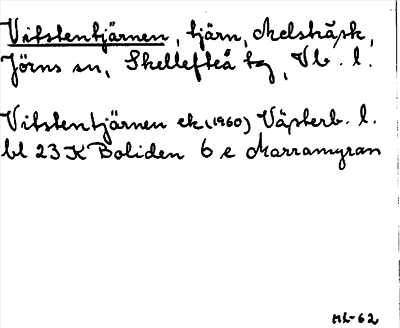 Vitstentjärnen, tjärn, Melsträsk,
Jörns sn, Skellefteå tg, Vb. l.
Vitstentjärnen ek (1960) Västerb. l.
bl 23 K Boliden 6 e Marramyran
ML-62